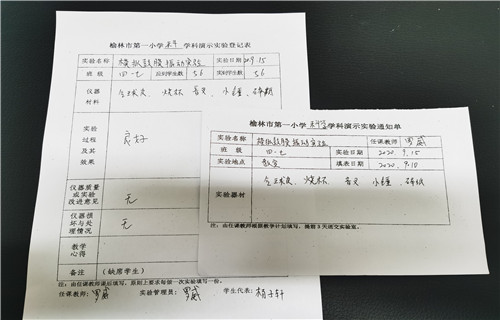 榆林市第一小学科学学科演示实验登记表
实验名称 模拟鼓膜振动实验 实验日期 20.9.15
班级 四·七 应到学生数 56 实到学生数 56
仪器材料 气球皮、烧杯、音叉、小锤、砂纸
实验过程及其效果 良好
仪器质量或实验改进意见 无
仪器损坏与处理情况 无
教学心得
备注 (缺席学生)
注:由任课教师课后填写,原则上要求每做一次实验填写一份。
任课教师: 罗威 实验管理员: 罗威 学生代表: 轩
榆林市第一小学科学学科演示实验通知单
实验名称 模拟鼓膜振动实验 任课教师 罗威
班级 四·七 实验日期 2020.9.15
实验地点 教室 填表日期 2020.9.10
实验器材 气球皮、烧杯、音叉、小锤、砂纸
注:由任课教师根据教学计划填写,提前3天送交实验室。